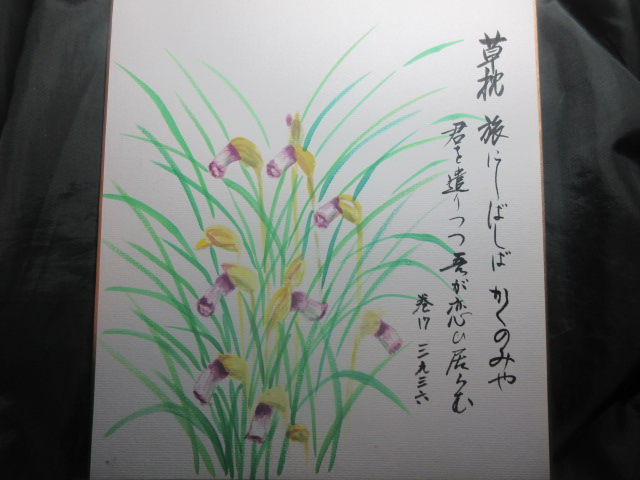 草枕 旅にしばしば かくのみや
君を遣りつつ 吾が恋ひ居らむ
巻17 三九三六